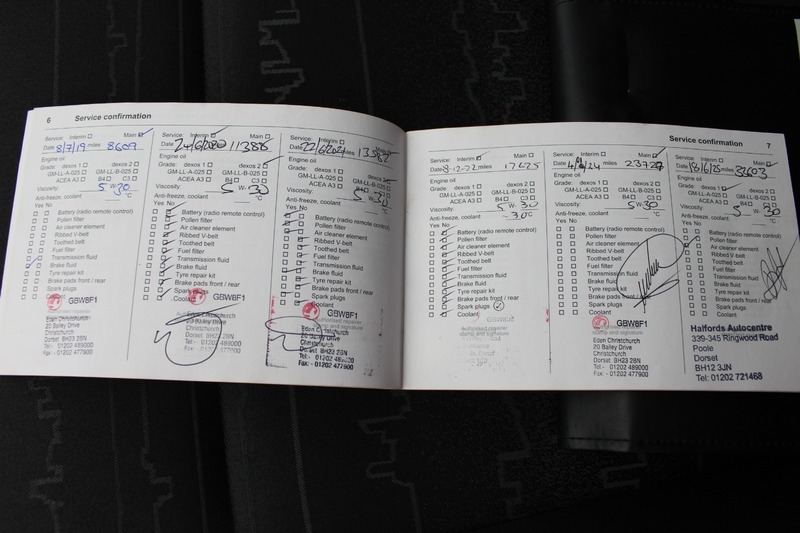 6 Service confirmation
Service: Interim Main
Date 8/7/19 miles 8609
Engine oil
Grade: dexos 1 dexos 2
GM-LL-A-025 GM-LL-B-025
ACEA A3 B4 C3
Viscosity: 5 W- 30
Anti-freeze, coolant °C
Yes No
Battery (radio remote control)
Pollen filter
Air cleaner element
Ribbed V-belt
Toothed belt
Fuel filter
Transmission fluid
Brake fluid
Tyre repair kit
Brake pads front / rear
Spark plugs
Coolant
GBW8F1
Eden Christchurch
20 Bailey Drive
Christchurch
Dorset BH23 2BN
Tel:- 01202 489000
Fax:- 01202 477900
Service: Interim Main
Date 24/6/2020 11388
Engine oil
Grade: dexos 1 dexos 2
GM-LL-A-025 GM-LL-B-025
ACEA A3 B4 C3
Viscosity: 5 W- 30
Anti-freeze, coolant °C
Yes No
Battery (radio remote control)
Pollen filter
Air cleaner element
Ribbed V-belt
Toothed belt
Fuel filter
Transmission fluid
Brake fluid
Tyre repair kit
Brake pads front / rear
Spark plugs
Coolant
GBW8F1
Eden Christchurch
20 Bailey Drive
Christchurch
Dorset BH23 2BN
Tel:- 01202 489000
Fax:- 01202 477900
Service: Interim Main
Date 22/6/2021 miles 13562
Engine oil
Grade: dexos 1 dexos 2
GM-LL-A-025 GM-LL-B-025
ACEA A3 B4 C3
Viscosity: 5 W- 30
Anti-freeze, coolant °C
Yes No
Battery (radio remote control)
Pollen filter
Air cleaner element
Ribbed V-belt
Toothed belt
Fuel filter
Transmission fluid
Brake fluid
Tyre repair kit
Brake pads front / rear
Spark plugs
Coolant
GBW8F1
Authorised repairer
stamp and signature
Eden Christchurch
20 Bailey Drive
Christchurch
Dorset BH23 2BN
Tel:- 01202 489000
Fax:- 01202 477900
Service confirmation 7
Service: Interim Main
Date 12-22 miles 17625
Engine oil
Grade: dexos 1 dexos 2
GM-LL-A-025 GM-LL-B-025
ACEA A3 B4 C3
Viscosity: 5 W- 30
Anti-freeze, coolant -30°C
Yes No
Battery (radio remote control)
Pollen filter
Air cleaner element
Ribbed V-belt
Toothed belt
Fuel filter
Transmission fluid
Brake fluid
Tyre repair kit
Brake pads front / rear
Spark plugs
Coolant
Authorised repairer
stamp and signature
Service: Interim Main
Date 24 miles 23727
Engine oil
Grade: dexos 1 dexos 2
GM-LL-A-025 GM-LL-B-025
ACEA A3 B4 C3
Viscosity: 5 W- 30
Anti-freeze, coolant °C
Yes No
Battery (radio remote control)
Pollen filter
Air cleaner element
Ribbed V-belt
Toothed belt
Fuel filter
Transmission fluid
Brake fluid
Tyre repair kit
Brake pads front / rear
Spark plugs
Coolant
GBW8F1
Eden Christchurch
20 Bailey Drive
Christchurch
Dorset BH23 2BN
Tel:- 01202 489000
Fax:- 01202 477900
Service: Interim Main
Date 18/6/25 miles 32603
Engine oil
Grade: dexos 1 dexos 2
GM-LL-A-025 GM-LL-B-025
ACEA A3 B4 C3
Viscosity: 5 W- 30
Anti-freeze, coolant °C
Yes No
Battery (radio remote control)
Pollen filter
Air cleaner element
Ribbed V-belt
Toothed belt
Fuel filter
Transmission fluid
Brake fluid
Tyre repair kit
Brake pads front / rear
Spark plugs
Coolant
Halfords Autocentre
339-345 Ringwood Road
Poole
Dorset
BH12 3JN
Tel: 01202 721468